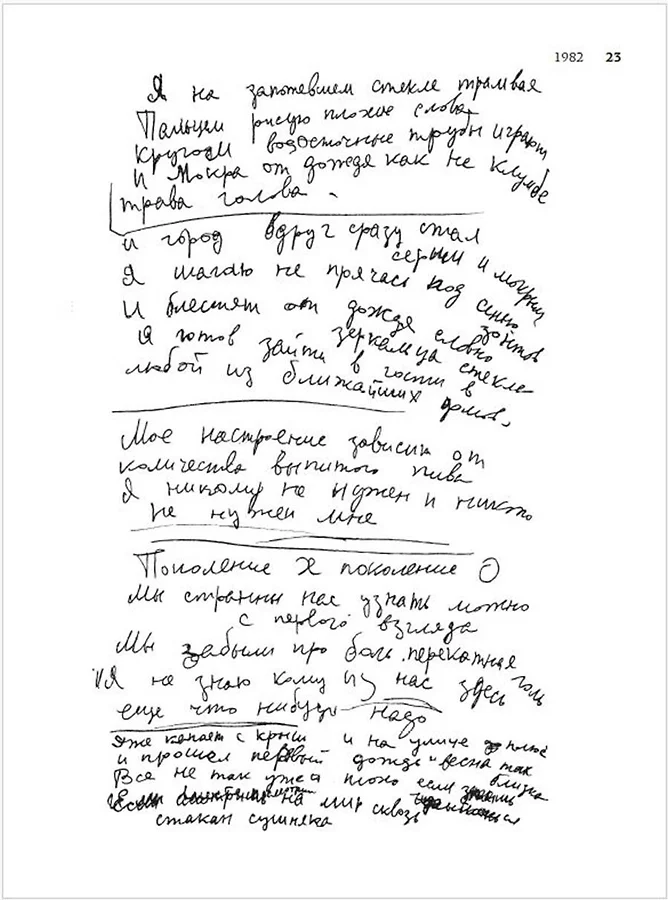 1982 23
Я на запотевшем стекле трамвая
Пальцем рисую плохие слова
Кругом водосточные трубы играют
И Мокра от дождя как не клумбе
трава голова.
и город вдруг сразу стал
серым и мокрым
Я шагаю не прячась под сенью
зонтов
И блестят от дождя словно
зеркальца стекла
Я готов зайти в гости в
любой из ближайших домов.
Мое настроение зависит от
количества выпитого пива
Я никому не нужен и никто
не нужен мне
Поколение X поколение 0
Мы странны нас узнать можно
с первого взгляда
Мы забыли про боль. перекатная
голь
И Я не знаю кому из нас здесь
еще что нибудь надо
Уже капает с крыш и на улице плюс
и прошел первый дождь и весна так
близка
Все не так уж и плохо если
на мир сквозь
стакан сушняка